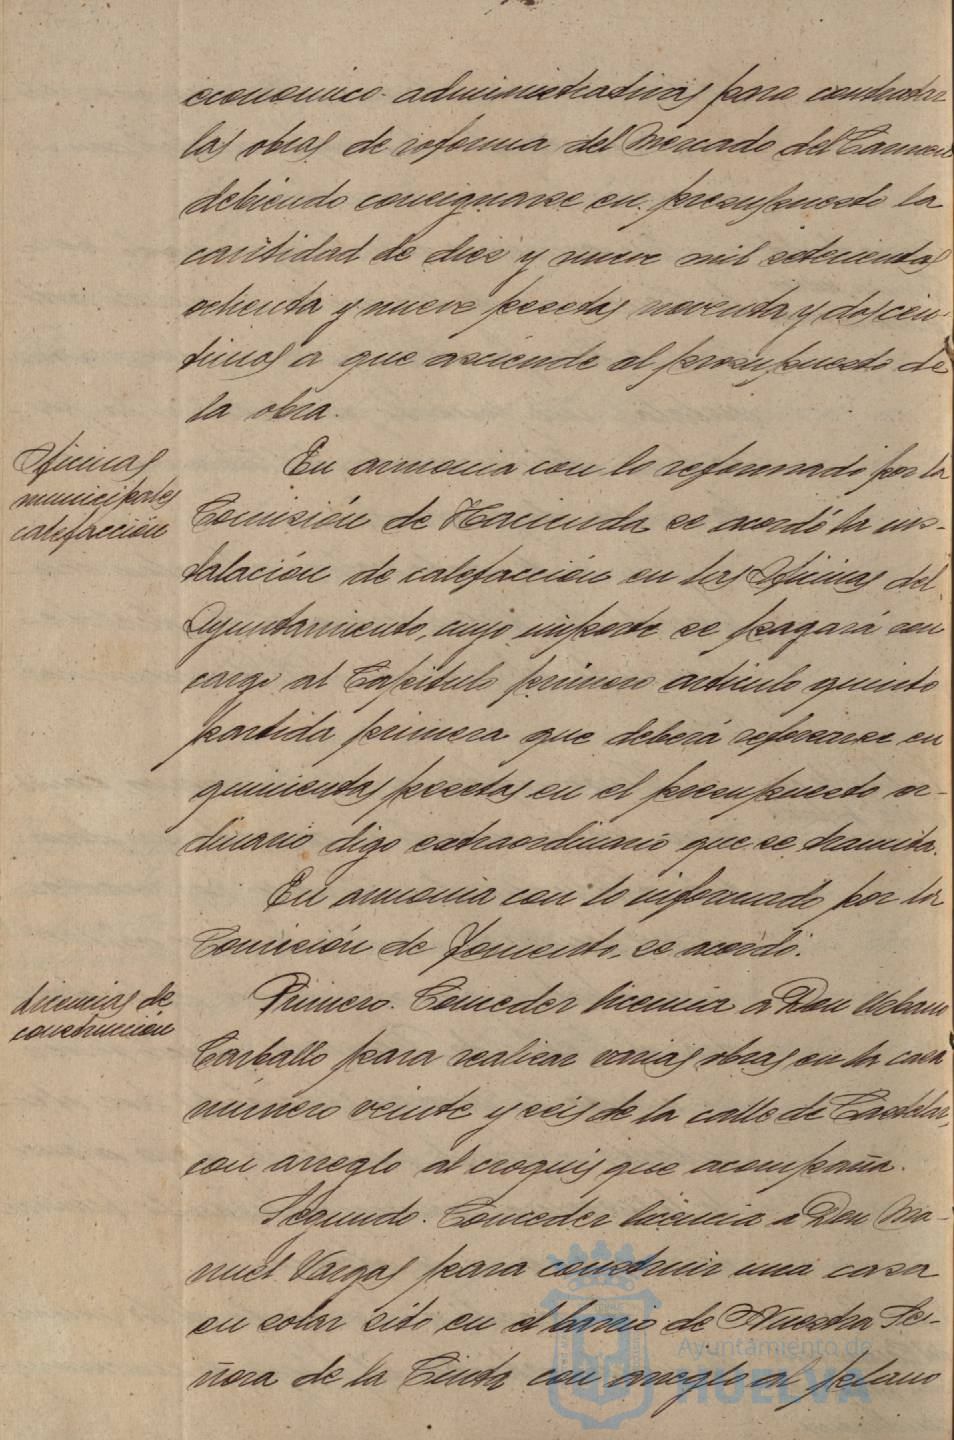 economico-administrativas para contratar
las obras de reforma del Mercado del Carmen
debiendo consignarse en presupuesto la
cantidad de diez y nueve mil setecientas
ochenta y nueve pesetas noventa y dos cen-
timos a que asciende el presupuesto de
la obra.
Oficinas
municipales
calefacción
En armonia con lo informado por la
Comisión de Hacienda se acordó la ins-
talación de calefacción en las Oficinas del
Ayuntamiento, cuyo importe se pagará con
cargo al Capitulo primero articulo quinto
partida primera que deberá reforzarse en
quinientas pesetas en el presupuesto or-
dinario digo extraordinario que se tramita.
En armonia con lo informado por la
Comisión de Fomento, se acordó:
Licencias de
construccion
Primero. Conceder licencia a Don Urbano
Carballo para realizar varias obras en la casa
número veinte y seis de la calle de Castelar,
con arreglo al croquis que acompaña.
Segundo. Conceder licencia a Don Ma-
nuel Vargas para construir una casa
en solar sito en el barrio de Nuestra Se-
ñora de la Cinta con arreglo al plano
Ayuntamiento de
HUELVA